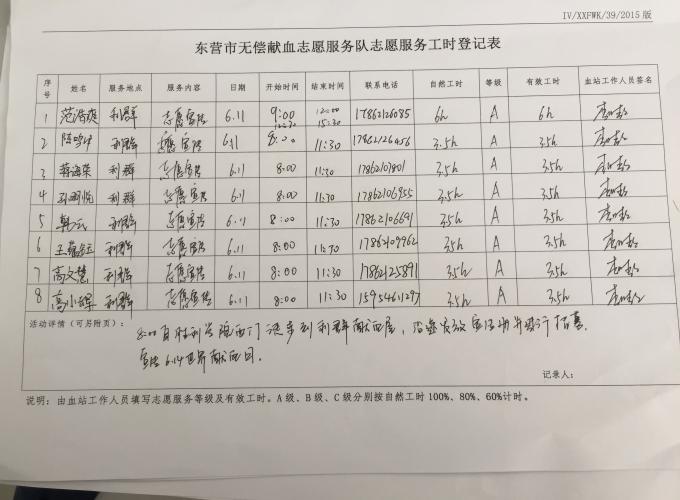 IV/XXFWK/39/2015 版
东营市无偿献血志愿服务队志愿服务工时登记表
序号 姓名 服务地点 服务内容 日期 开始时间 结束时间 联系电话 自然工时 等级 有效工时 血站工作人员签名
1 利群 志愿宣传 6.11 9:00 12:30 12:00 15:30 17862126085 6h A 6h
2 利群 志愿宣传 6.11 8:00 11:30 17862126456 3.5h A 3.5h
3 蒋海荣 利群 志愿宣传 6.11 8:00 11:30 17862107801 3.5h A 3.5h
4 利群 志愿宣传 6.11 8:00 11:30 17862106955 3.5h A 3.5h
5 韩云 利群 志愿宣传 6.11 8:00 11:30 17862106691 3.5h A 3.5h
6 利群 志愿宣传 6.11 8:00 11:30 17862109962 3.5h A 3.5h
7 高文慧 利群 志愿宣传 6.11 8:00 11:30 17862125891 3.5h A 3.5h
8 高小辉 利群 志愿宣传 6.11 8:00 11:30 15954611297 3.5h A 3.5h
活动详情（可另附页）：
8:00 西门徒步到利群献血屋，
宣传6.14世界献血日。
记录人：
说明：由血站工作人员填写志愿服务等级及有效工时。A 级、B 级、C 级分别按自然工时 100%、80%、60%计时。